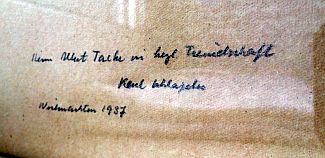 Herrn Uhlert Talke in herzl. Freundschaft
Karl Schlageter
Weihnachten 1937